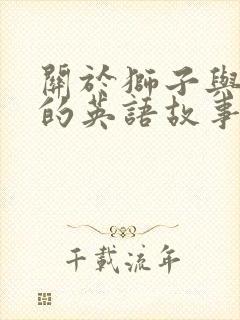 關於獅子與
的英語故事
千載流年